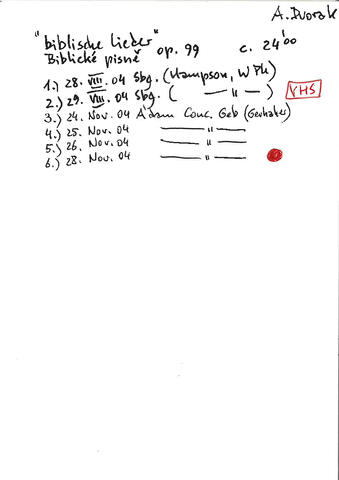 A. Dvorak
"biblische lieder"
Biblické pisně op. 99 c. 24'00
1.) 28. VIII. 04 Sbg. (Hampson, WPh)
2.) 29. VIII. 04 Sbg. ( — " — ) VHS
3.) 24. Nov. 04 A'dam Conc. Geb (Gerhaher)
4.) 25. Nov. 04 — " —
5.) 26. Nov. 04 — " —
6.) 28. Nov. 04 — " —